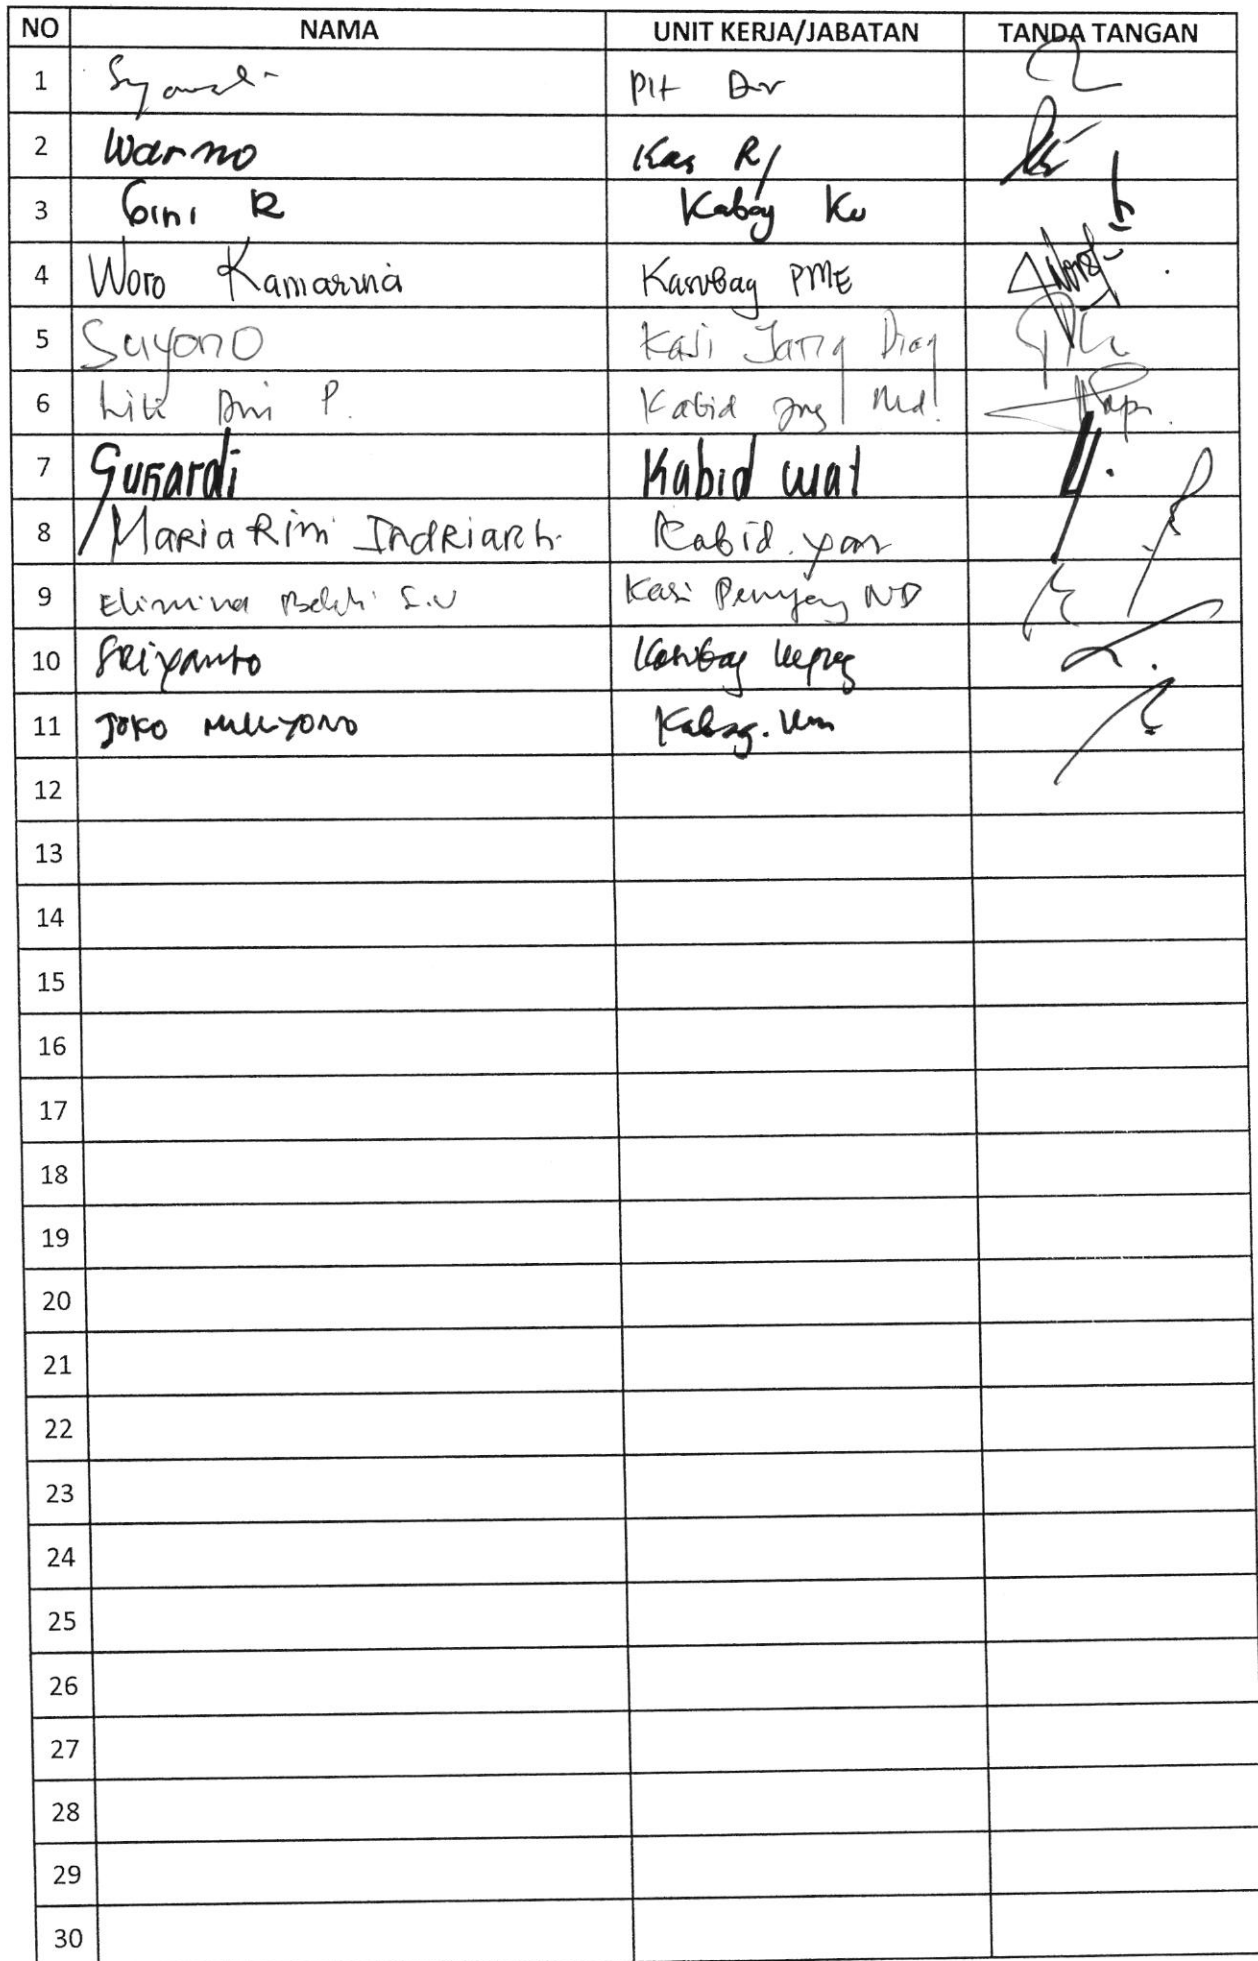 NO NAMA UNIT KERJA/JABATAN TANDA TANGAN
1 Plt Dir
2 Warno Kas RJ
3 Gini R Kabag Ku
4 Woro Kamarina Kasubag PME
5 Suyono Kasi Jang Diag
6 P. Kabid Jng Md.
7 Gunardi Kabid wat
8 Maria Rini Indriarti Kabid. yan
9 Elimina S.U Kasi Penjang ND
10 Sriyanto Kasubag Kepeg
11 Joko Mulyono Kabag. Um
12
13
14
15
16
17
18
19
20
21
22
23
24
25
26
27
28
29
30